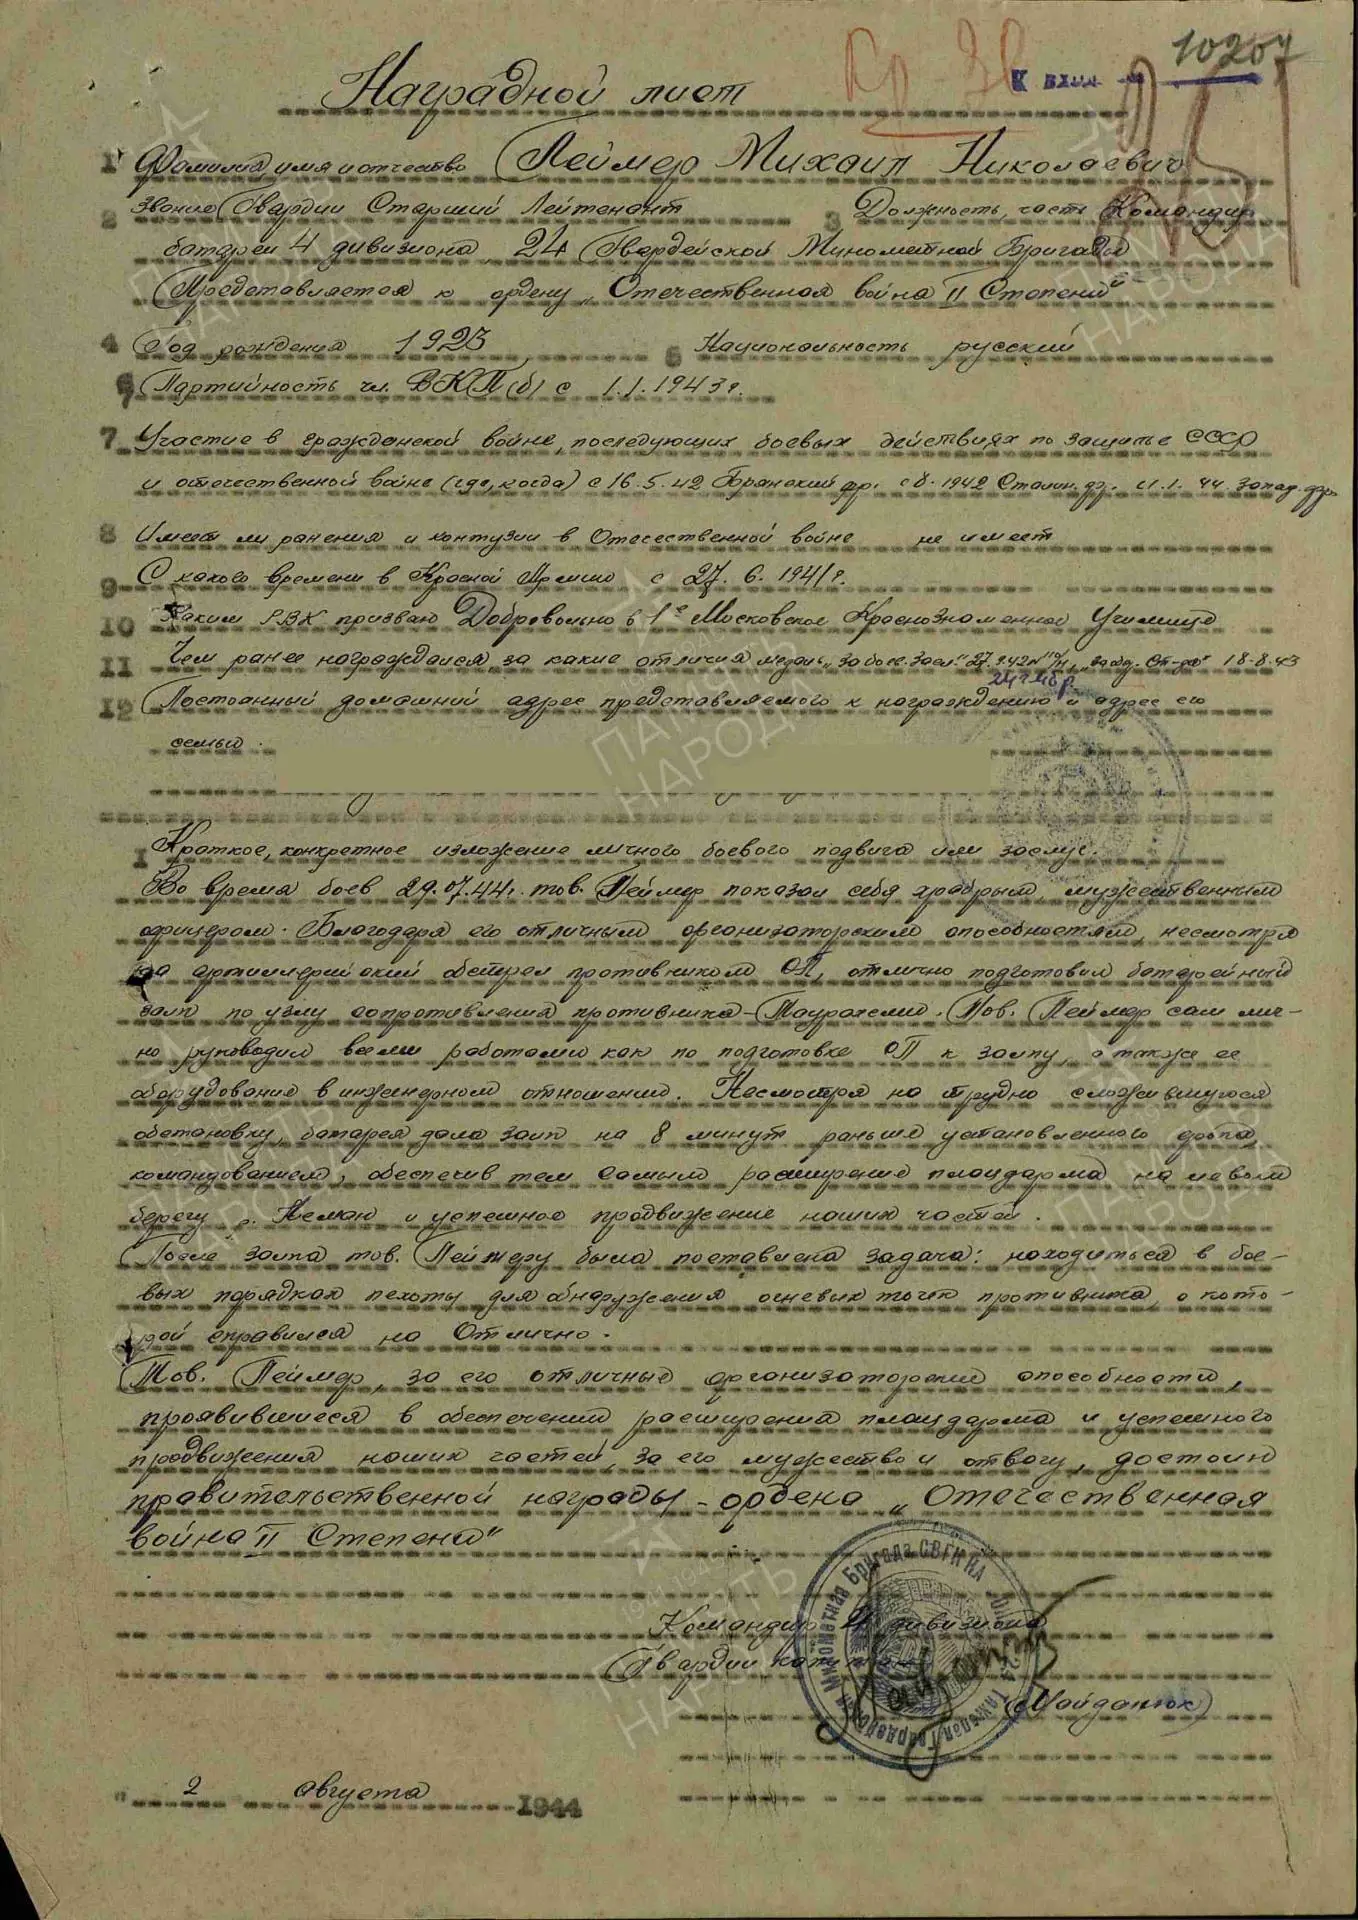 10207
К вход. №
Наградной лист
1 Фамилия имя и отчество Пеймер Михаил Николаевич
2 Звание Гвардии Старший Лейтенант 3 Должность, часть Командир
батареи 4 дивизиона, 24 Гвардейской Минометной Бригады
Представляется к ордену „Отечественная война II Степени"
4 Год рождения 1923 5 Национальность русский
6 Партийность чл. ВКП(б) с 1.1.1943г.
7 Участие в гражданской войне, последующих боевых действиях по защите СССР
и отечественной войне (где, когда) с 16.5.42 Брянский фр. с 8.1942 Сталин. фр. с 1.1.44. Запад. фр.
8 Имеет ли ранения и контузии в Отечественной войне не имеет
9 С какого времени в Красной Армии с 27.6.1941г.
10 Каким РВК призван Добровольно в 1е Московское Краснознаменное Училище
11 Чем ранее награждался, за какие отличия медаль „За боев. засл." 27.9.42 „За об. Ст-да" 18-8-43
12 Постоянный домашний адрес представляемого к награждению и адрес его
семьи.
I Краткое, конкретное изложение личного боевого подвига или заслуг.
Во время боев 29.07.44г. тов. Пеймер показал себя храбрым, мужественным
офицером. Благодаря его отличным организаторским способностям, несмотря
на артиллерийский обстрел противником ОП, отлично подготовил батарейный
залп по узлу сопротивления противника - Таурокеми. Тов. Пеймер сам лич-
но руководил всеми работами как по подготовке ОП к залпу, а также ее
оборудования в инженерном отношении. Несмотря на трудно сложившуюся
обстановку, батарея дала залп на 8 минут раньше установленного срока,
командованием, обеспечив тем самым расширение плацдарма на левом
берегу р. Неман и успешное продвижение наших частей.
После залпа тов. Пеймеру была поставлена задача: находиться в бое-
вых порядках пехоты для обнаружения огневых точек противника, с кото-
рой справился на Отлично.
Тов. Пеймер, за его отличные организаторские способности,
проявившиеся в обеспечении расширения плацдарма и успешного
продвижения наших частей, за его мужество и отвагу, достоин
правительственной награды - ордена „Отечественная
война II Степени"
Командир 4 дивизиона
Гвардии капитан
(Майданюк)
2 августа 1944